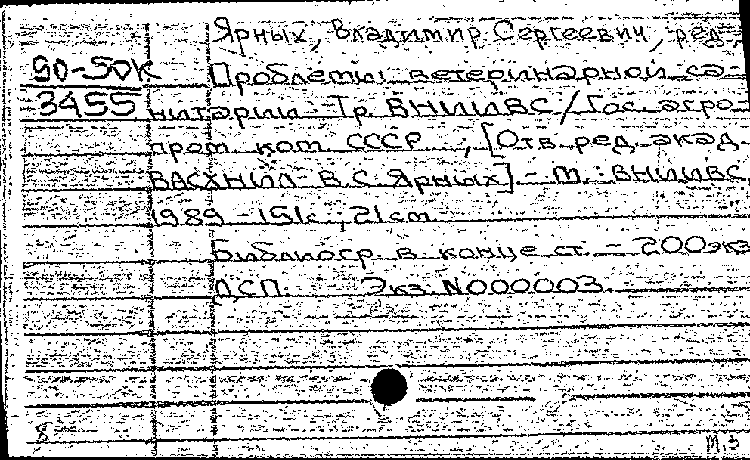 Ярных, Владимир Сергеевич, ред.
90-50К Проблемы ветеринарной са-
3455 нитарии. - Тр. ВНИИВС / Гос. агро-
пром. ком. СССР, [Отв. ред. акад.
ВАСХНИЛ В.С. Ярных] - М.: ВНИИВС,
1989. - 151с.; 21 см.
Библиогр. в конце ст. - 200 экз.
ДСП. Экз. N000003.